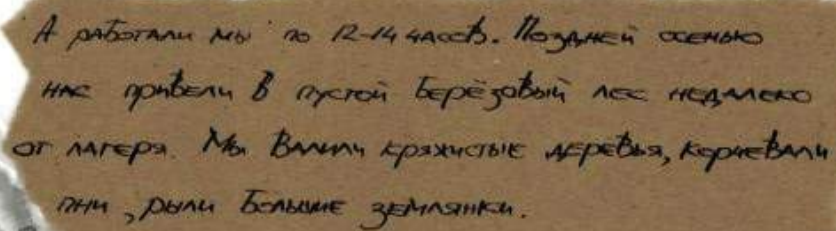 А работали мы по 12-14 часов. Поздней осенью
нас привели в пустой берёзовый лес недалеко
от лагеря. Мы валили кряжистые деревья, корчевали
пни, рыли большие землянки.